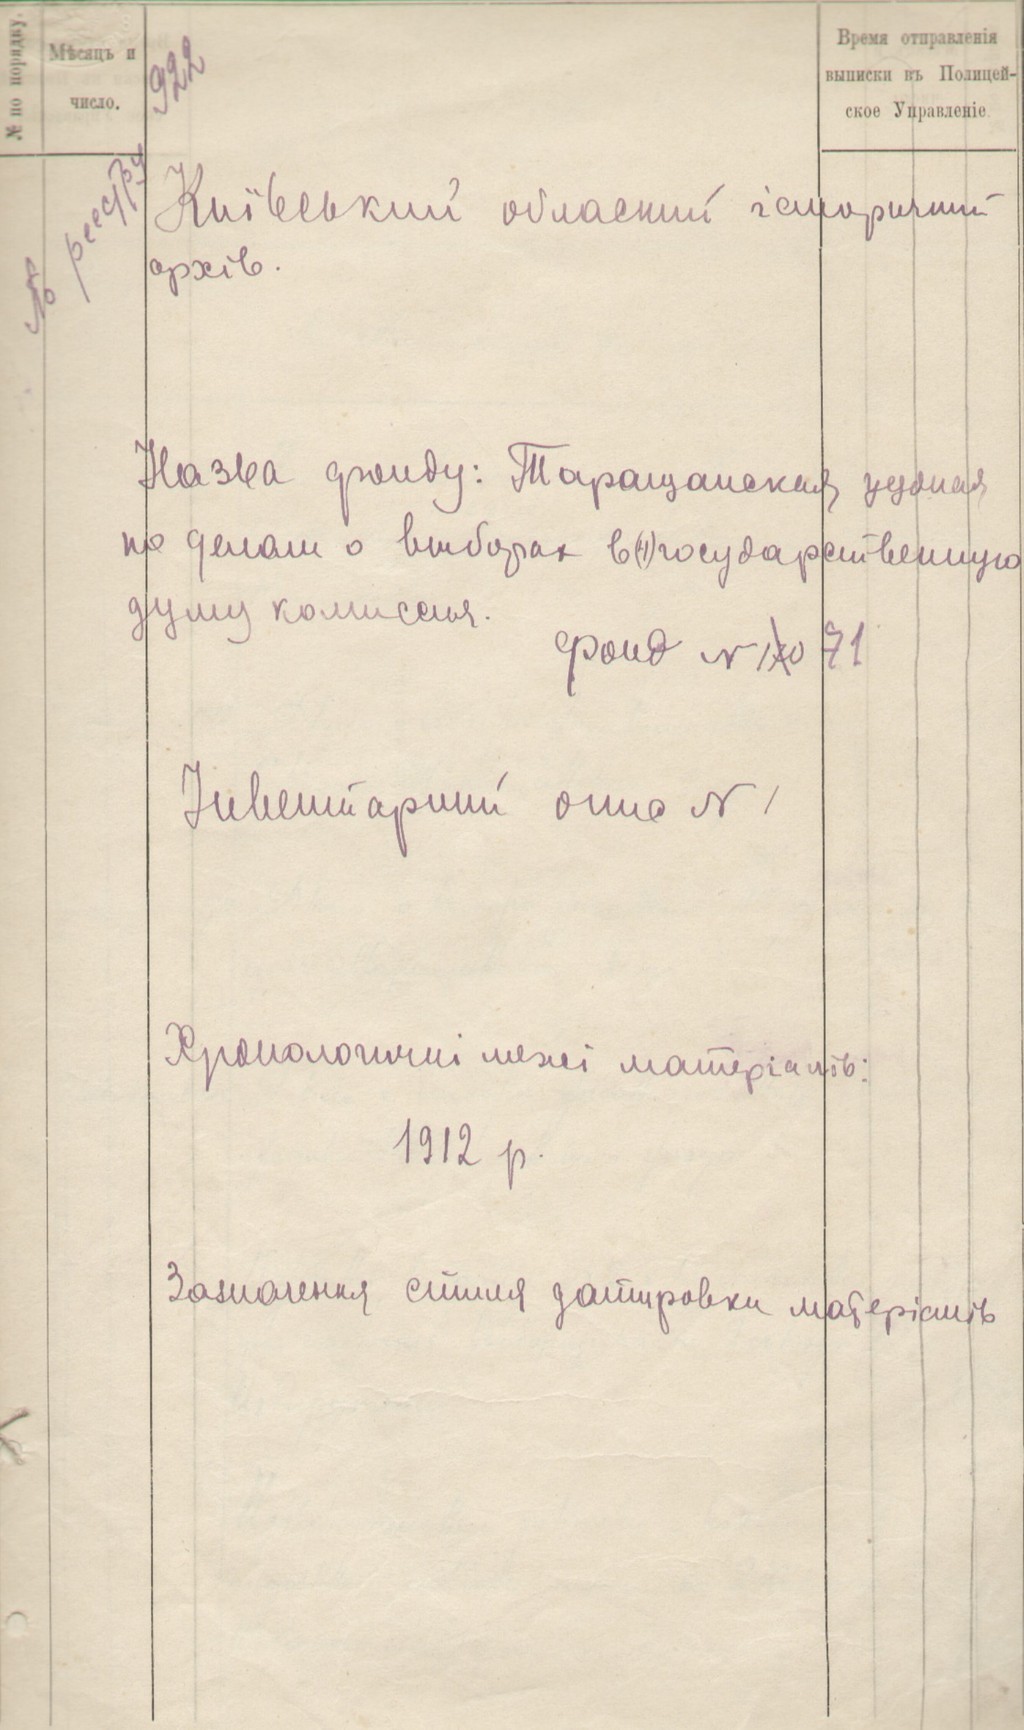 № по порядку.
Мѣсяцъ и
число.
Время отправленія
выписки въ Полицей-
ское Управленіе
№ реестру 922
Київський обласний історичний
архів.
Назва фонду: Таращанская уездная
по делам о выборах в (4) государственную
думу комиссия.
фонд N 71
Інвентарний опис N 1
Хронологичні межі матеріалів:
1912 р.
Зазначення стиля датировки матеріалів